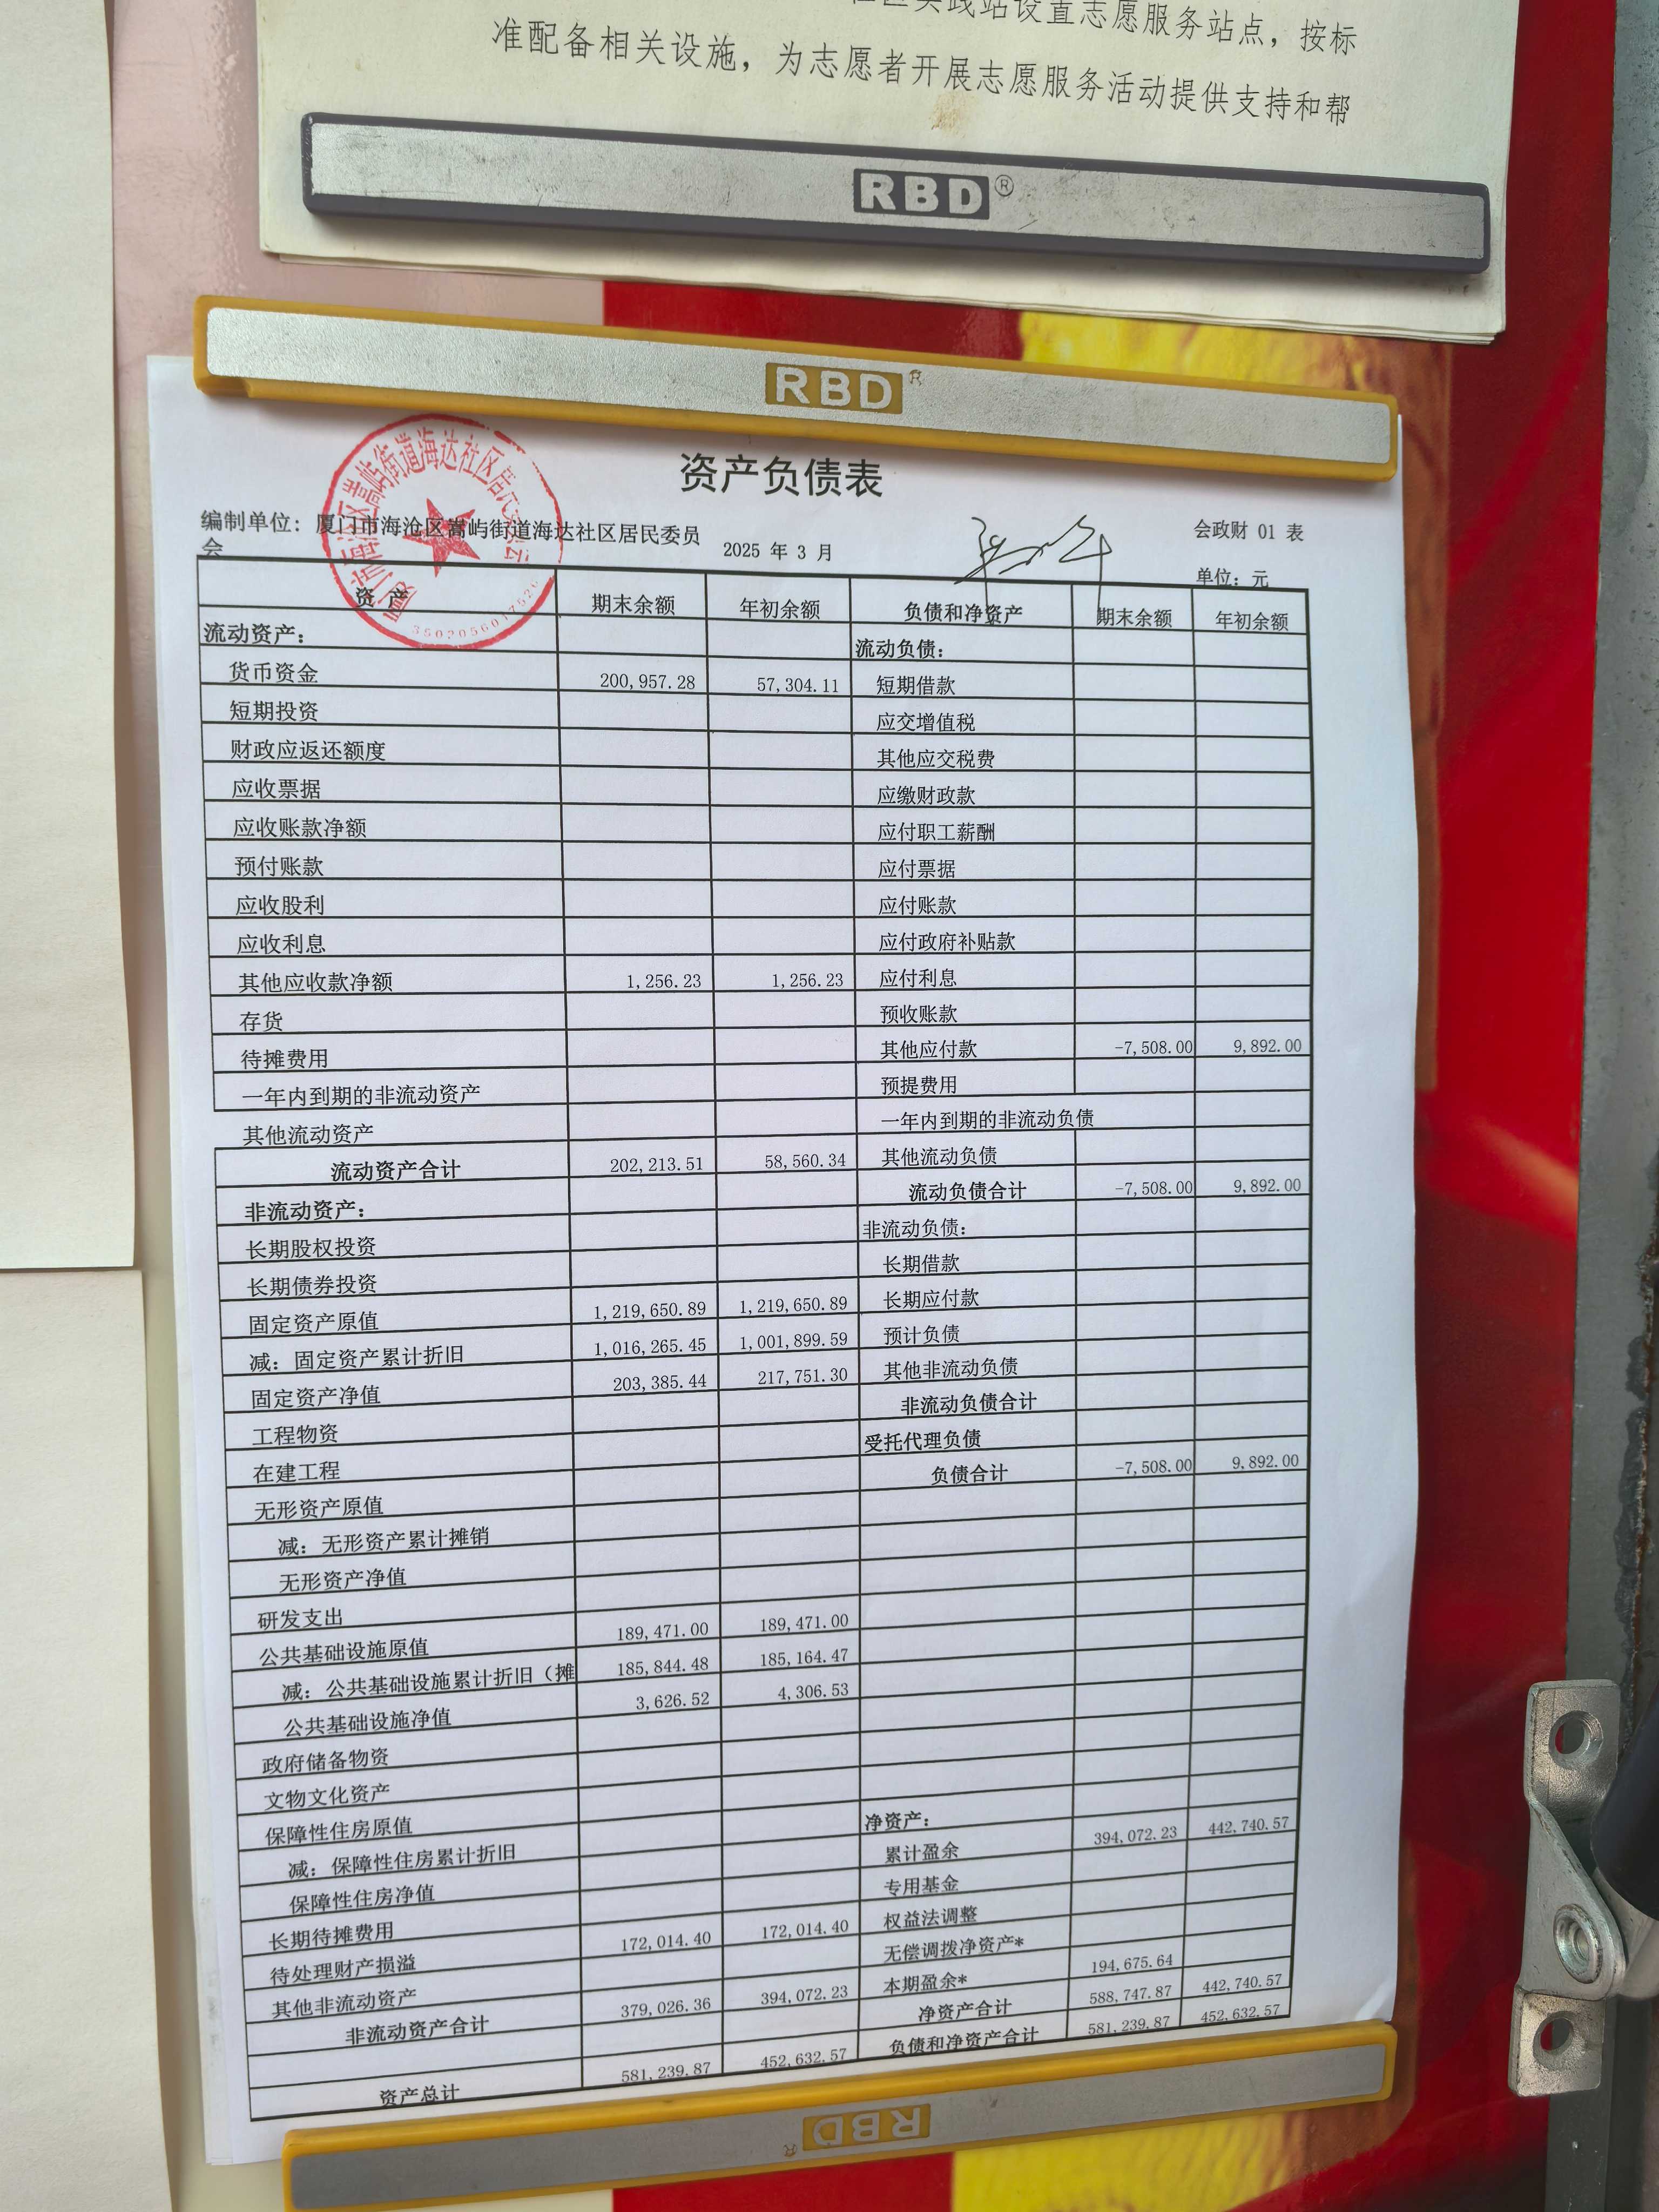 准配备相关设施，为志愿者开展志愿服务活动提供支持和帮
RBD®
RBD®
资产负债表
编制单位：厦门市海沧区嵩屿街道海达社区居民委员会
2025 年 3 月
会政财 01 表
单位：元
资 产 期末余额 年初余额 负债和净资产 期末余额 年初余额
流动资产： 流动负债：
货币资金 200,957.28 57,304.11 短期借款
短期投资 应交增值税
财政应返还额度 其他应交税费
应收票据 应缴财政款
应收账款净额 应付职工薪酬
预付账款 应付票据
应收股利 应付账款
应收利息 应付政府补贴款
其他应收款净额 1,256.23 1,256.23 应付利息
存货 预收账款
待摊费用 其他应付款 -7,508.00 9,892.00
一年内到期的非流动资产 预提费用
其他流动资产 一年内到期的非流动负债
流动资产合计 202,213.51 58,560.34 其他流动负债
非流动资产： 流动负债合计 -7,508.00 9,892.00
长期股权投资 非流动负债：
长期债券投资 长期借款
固定资产原值 1,219,650.89 1,219,650.89 长期应付款
减：固定资产累计折旧 1,016,265.45 1,001,899.59 预计负债
固定资产净值 203,385.44 217,751.30 其他非流动负债
工程物资 非流动负债合计
在建工程 受托代理负债
无形资产原值 负债合计 -7,508.00 9,892.00
减：无形资产累计摊销
无形资产净值
研发支出
公共基础设施原值 189,471.00 189,471.00
减：公共基础设施累计折旧（摊 185,844.48 185,164.47
公共基础设施净值 3,626.52 4,306.53
政府储备物资
文物文化资产
保障性住房原值 净资产：
减：保障性住房累计折旧 累计盈余 394,072.23 442,740.57
保障性住房净值 专用基金
长期待摊费用 172,014.40 172,014.40 权益法调整
待处理财产损溢 无偿调拨净资产*
其他非流动资产 本期盈余* 194,675.64
非流动资产合计 379,026.36 394,072.23 净资产合计 588,747.87 442,740.57
负债和净资产合计 581,239.87 452,632.57
资产总计 581,239.87 452,632.57
RBD®